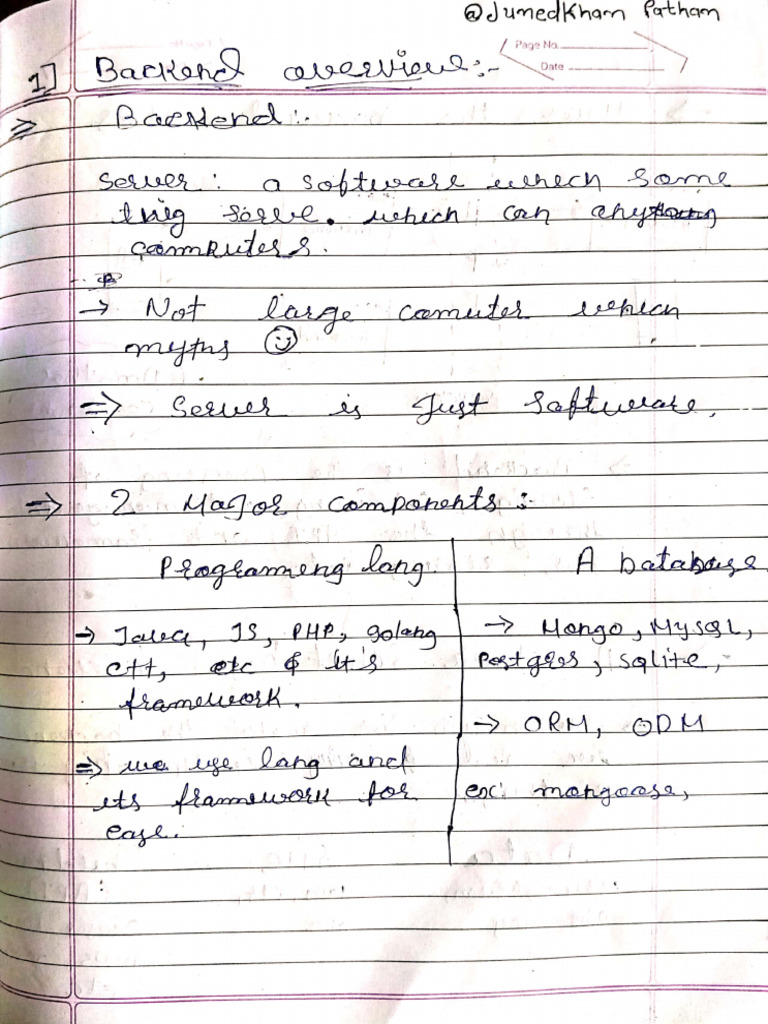 @JunedKham Patham
Page No.
Date
1] Backend overview:-
⇒ Backend:-
Server: a software which some
thig serve. which can any
computers.
→ Not large comuter which
myths ☺
⇒ Server is Just software.
⇒ 2 Major components:
Programming lang.
A Database
→ Java, JS, PHP, golang
C++, etc & it's
framework.
⇒ we use lang and
its framework for
ease.
→ Mongo, MySQL,
Postgres, sqlite,
→ ORM, ODM
ex: mongoose,